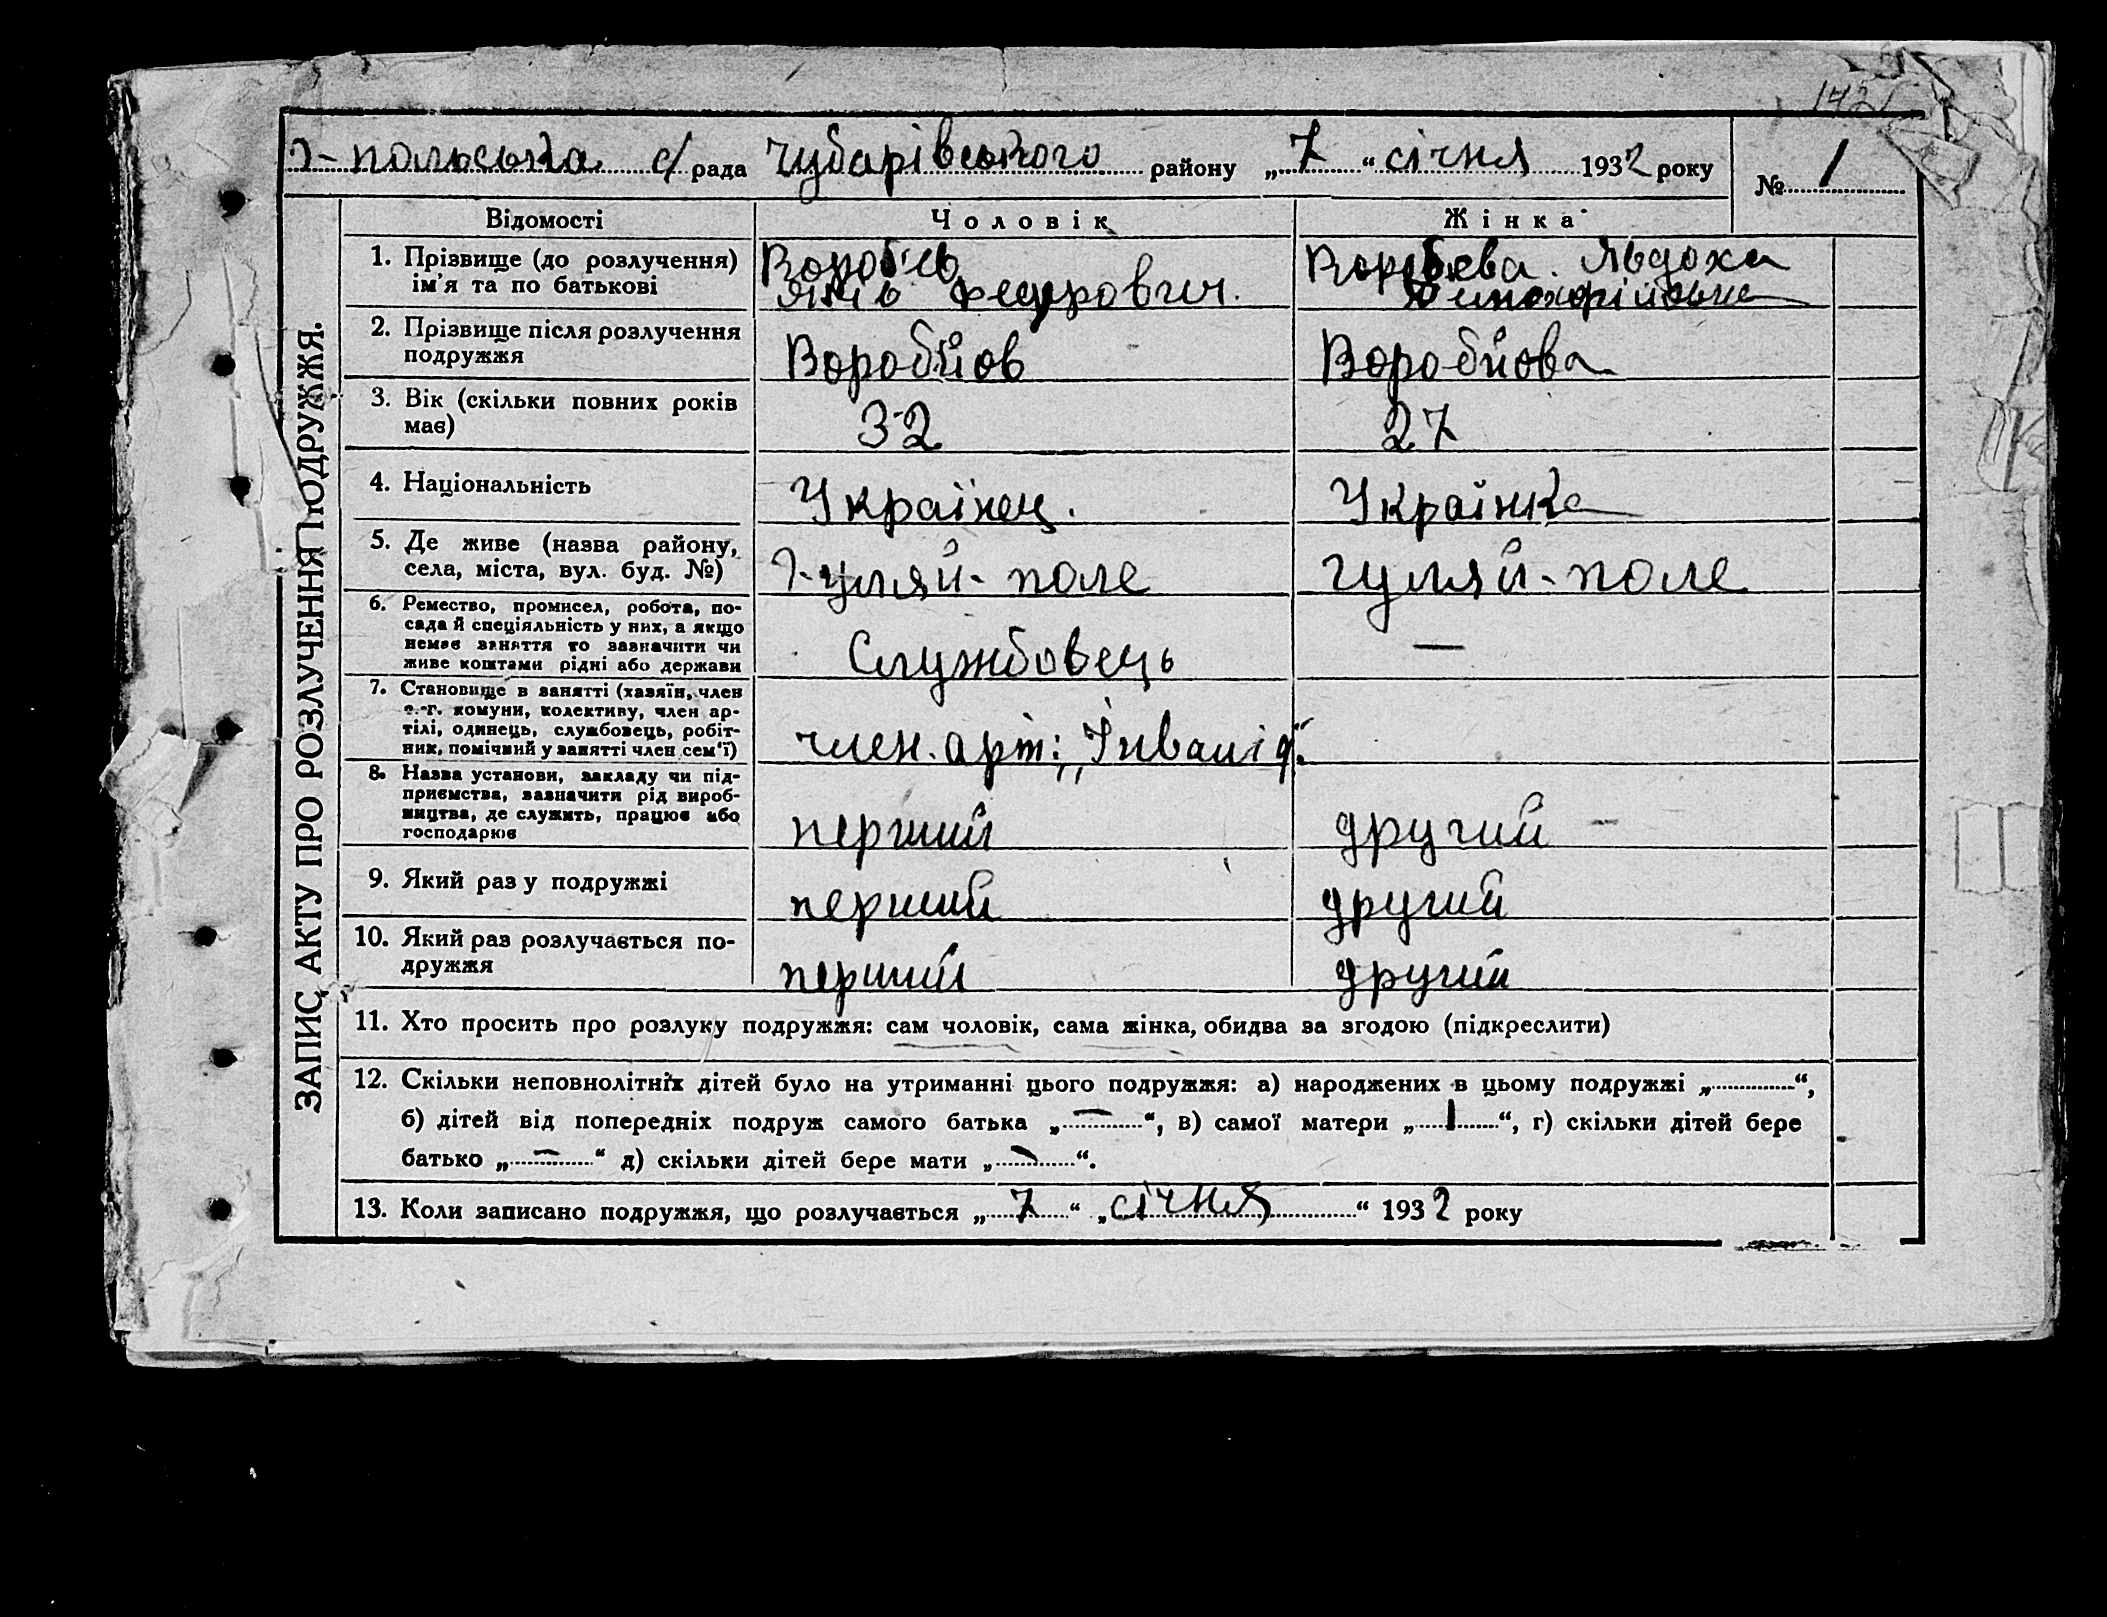 142
Г-польська с/рада Чубарівського району „7“ січня 1932 року № 1
ЗАПИС АКТУ ПРО РОЗЛУЧЕННЯ ПОДРУЖЖЯ.
Відомості Чоловік Жінка
1. Прізвище (до розлучення) Воробйов Воробьева. Явдоха
ім'я та по батькові Федорович.
2. Прізвище після розлучення
подружжя Воробйов Воробйова
3. Вік (скільки повних років
має) 32 27
4. Національність Українец. Українка
5. Де живе (назва району,
села, міста, вул. буд. №) Гуляй-поле гуляй-поле
6. Ремество, промисел, робота, по-
сада й спеціяльність у них, а якщо
немає заняття то зазначити чи
живе коштами рідні або держави Службовець —
7. Становище в занятті (хазяїн, член
с.-г. комуни, колективу, член ар-
тілі, одинець, службовець, робіт-
ник, помічний у занятті член сем'ї) член. арт: „Інвалід“
8. Назва установи, закладу чи під-
приємства, зазначити рід вироб-
ництва, де служить, працює або
господарює перший другий -
9. Який раз у подружжі перший другий
10. Який раз розлучається по-
дружжя перший другий
11. Хто просить про розлуку подружжя: сам чоловік, сама жінка, обидва за згодою (підкреслити)
12. Скільки неповнолітніх дітей було на утриманні цього подружжя: а) народжених в цьому подружжі „..........“,
б) дітей від попередніх подруж самого батька „—“, в) самої матери „1“, г) скільки дітей бере
батько „—“ д) скільки дітей бере мати „—“.
13. Коли записано подружжя, що розлучається „7“ „січня“ 1932 року